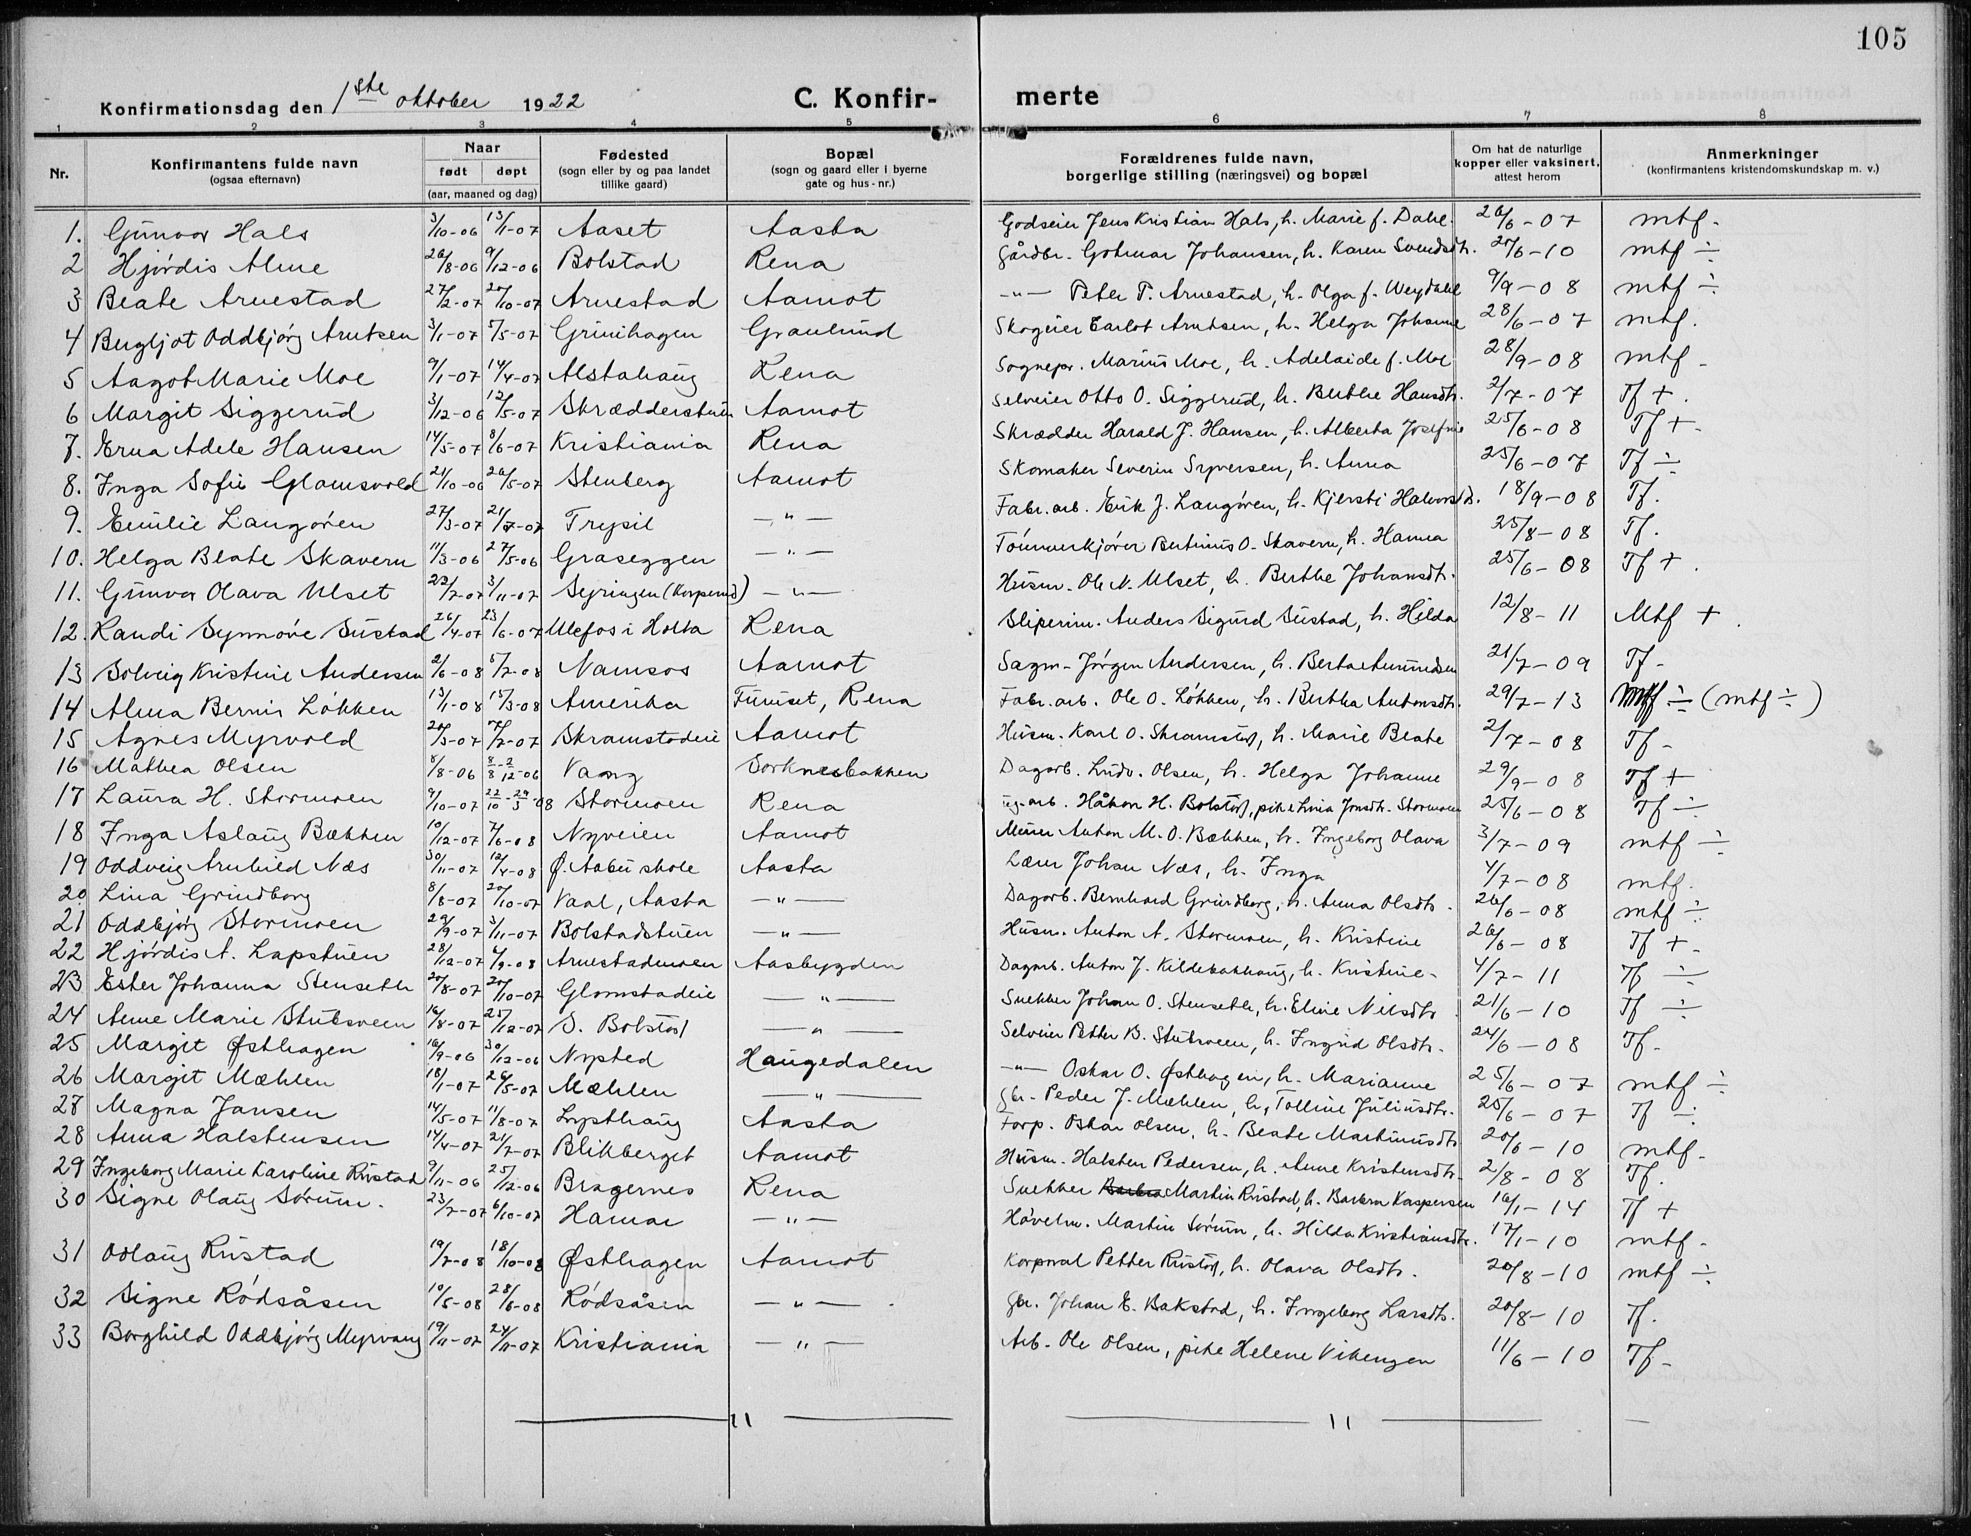 105
Konfirmationsdag den 1ste oktober 1922 C. Konfir- merte
1 2 3 4 5 6 7 8
Nr. Konfirmantens fulde navn (ogsaa efternavn) Naar født døpt (aar, maaned og dag) Fødested (sogn eller by og paa landet tillike gaard) Bopæl (sogn og gaard eller i byerne gate og hus-nr.) Forældrenes fulde navn, borgerlige stilling (næringsvei) og bopæl Om hat de naturlige kopper eller vaksinert, attest herom Anmerkninger (konfirmantens kristendomskundskap m. v.)
1. Gunvor Hals 3/10-06 13/1-07 Aaset Aasta Godseier Jens Kristian Hals, h. Marie f. Dahl. 26/6-07 mtf.
2 Hjørdis Alme 26/8-06 9/12-06 Bolstad Rena Gårdbr. Gotmar Johansen, h. Karen Svendsdtr. 27/6-10 mtf ÷
3 Beate Arnestad 27/2-07 20/10-07 Arnestad Aamot -"- Peter T. Arnestad, h. Olga f. Weydahl 9/9-08 mtf ÷
4 Bergljot Oddbjørg Arntsen 3/1-07 5/5-07 Grinihagen Granlund Skogeier Carlot Arntsen, h. Helga Johanne 28/6-07 mtf.
5 Aagot Marie Moe 9/1-07 14/4-07 Alstahaug Rena Sognepr. Marius Moe, h. Adelaide f. Moe 28/9-08 mtf -
6 Margit Siggerud 3/12-06 12/5-07 Skrædderstuen Aamot Selveier Otto O. Siggerud, h. Berthe Hansdtr. 2/7-07 Tf +.
7. Erna Adele Hansen 14/5-07 8/6-07 Kristiania Rena Skrædder Harald J. Hansen, h. Alberta Josefine 25/6-08 Tf +
8. Inga Sofie Glomsvold 21/10-06 26/5-07 Stenberg Aamot Skomaker Severin Syversen, h. Anna 25/6-07 Tf ÷
9. Emilie Langøren 27/3-07 21/7-07 Trysil -"- Fabr.arb. Erik J. Langøren, h. Kjersti Halvorsdtr. 18/9-08 Tf.
10. Helga Beate Skavern 11/3-06 27/5-06 Graseggen -"- Tømmerkjører Bertinus O. Skavern, h. Hanna 25/8-08 Tf.
11. Gunvor Olava Ulset 22/7-07 3/11-07 Syringen (Korperud) -"- Husm. Ole N. Ulset, h. Berthe Johansdtr. 25/6-08 Tf +.
12. Randi Synnøve Sustad 26/4-07 23/6-07 Ulefos i Holta Rena Sliperim. Anders Sigurd Sustad, h. Hilda 12/8-11 Mtf +.
13 Solveig Kristine Andersen 2/6-08 5/7-08 Namsos Aamot Sagm- Jørgen Andersen, h. Berta Amundsen 21/7-09 Tf -
14 Alma Bernis Løkken 13/1-08 15/3-08 Amerika Furuset, Rena Fabr.arb. Ole O. Løkken, h. Bertha Antonsdtr. 29/7-13 Mtf ÷ (mtf ÷)
15 Agnes Myrvold 20/3-07 7/7-07 Skramstadeie Aamot Husm. Karl O. Skramstad, h. Marie Beate 2/7-08 Tf -
16 Mathea Olsen 8/8-06 8/8-2/12-06 Vang Sorknesbakken Dagarb. Ludv. Olsen, h. Helga Johanne 29/9-08 Tf +
17 Laura H. Stormoen 9/10-07 22/10-29/3-08 Stormoen Rena arb. Håkon H. Bolstad, pike Lina Jonsdtr. Stormoen 25/6-08 Tf ÷
18 Inga Aslaug Bækken 10/12-07 7/6-08 Nyveien Aamot Murer Anton M. O. Bækken, h. Ingeborg Olava 3/7-09 mtf ÷
19 Oddveig Arnhild Næs 30/11-07 12/4-08 Ø. Aabu skole Aasta Lærer Johan Næs, h. Inga 4/7-08 mtf.
20 Lina Grindborg 8/8-07 20/10-07 Vaal, Aasta -"- Dagarb. Bernhard Grindberg, h. Anna Olsdtr. 26/6-08 mtf ÷
21 Oddbjørg Stormoen 29/9-07 3/11-07 Bolstadstuen -"- Husm. Anton A. Stormoen, h. Kristine 26/6-08 Tf +
22 Hjørdis A. Lapstuen 28/12-07 6/9-08 Arnestadmoen Aasbygden Dagarb. Anton J. Kildebakhaug, h. Kristine - 4/7-11 Tf ÷
23 Ester Johanna Stenseth 20/8-07 20/10-07 Glomstadeie -"- Snekker Johan O. Stenseth, h. Eline Nilsdtr 21/6-10 Tf ÷
24 Anne Marie Stubsveen 16/8-07 25/12-07 S. Bolstad -"- Selveier Petter B. Stubsveen, h. Ingrid Olsdtr. 24/6-08 Tf -
25 Margit Østhagen 16/9-06 30/12-06 Nysted Haugedalen -"- Oskar O. Østhagen, h. Marianne 25/6-07 mtf ÷
26 Margit Mæhlen 18/1-07 26/5-07 Mæhlen -"- gbr. Peder J. Mæhlen, h, Tolline Juliusdtr. 25/6-07 Tf ÷
27 Magna Jansen 14/5-07 11/8-07 Lysthaug Aasta Forp. Oskar Olsen, h. Beate Martinusdtr 20/6-10 mtf -
28 Anna Halstensen 14/4-07 21/7-07 Blikberget Aamot Husm. Halsten Pedersen, h. Anne Kristensdtr. 2/8-08 Tf.
29 Ingeborg Marie Karoline Rustad 9/11-06 25/12-06 Bragernes Rena Snekker Martin Rustad, h. Barbra Kaspersen 16/1-14 Tf +
30 Signe Olaug Sørum. 23/7-07 6/10-07 Hamar -"- Høvelm. Martin Sørum, h. Hilda Kristiansdtr. 17/1-10 mtf -
31 Odlaug Rustad 19/7-08 18/10-08 Østhagen Aamot Korporal Petter Rustad, h. Olava Olsdtr. 20/8-10 mtf ÷
32 Signe Rødsåsen 10/5-08 28/6-08 Rødsåsen -"- gbr. Johan E. Bakstad, h. Ingeborg Larsdtr. 20/8-10 Tf.
33 Borghild Oddbjørg Myrvang 19/11-07 24/11-07 Kristiania -"- Arb. Ole Olsen, pike Helene Vikengen 11/6-10 Tf -
— 11 — — 11 — —